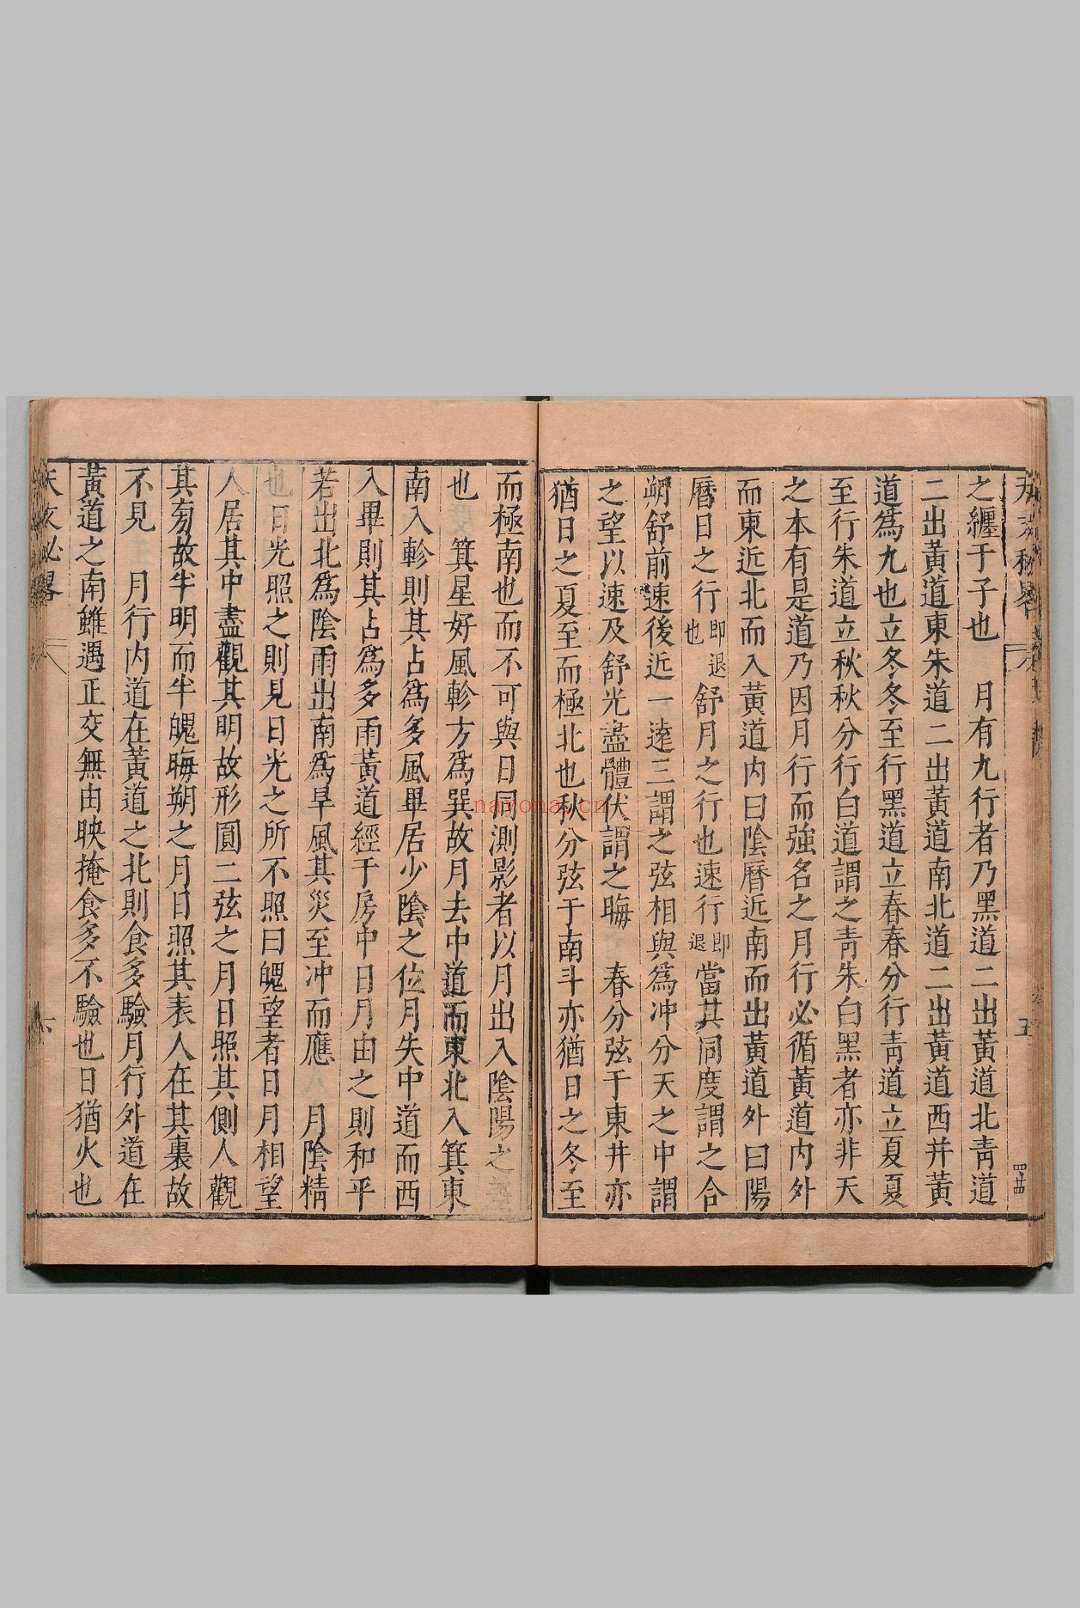 天文秘畧
五
之纏于子也　月有九行者乃黑道二出黃道北青道
二出黃道東朱道二出黃道南北道二出黃道西并黃
道為九也立冬冬至行黑道立春春分行青道立夏夏
至行朱道立秋秋分行白道謂之青朱白黑者亦非天
之本有是道乃因月行而強名之月行必循黃道內外
而東近北而入黃道內曰陰曆近南而出黃道外曰陽
曆日之行即退也舒月之行也速行即退當其同度謂之合
朔舒前速後近一遠三謂之弦相與為冲分天之中謂
之望以速及舒光盡體伏謂之晦　春分弦于東井亦
猶日之夏至而極北也秋分弦于南斗亦猶日之冬至
而極南也而不可與日同測影者以月出入陰陽之
也　箕星好風軫方為巽故月去中道而東北入箕東
南入軫則其占為多風畢居少陰之位月失中道而西
入畢則其占為多雨黃道經于房中日月由之則和平
若出北為陰雨出南為旱風其災至冲而應　月陰精
也日光照之則見日光之所不照曰魄望者日月相望
人居其中盡觀其明故形圓二弦之月日照其側人觀
其旁故半明而半魄晦朔之月日照其表人在其裏故
不見　月行內道在黃道之北則食多驗月行外道在
黃道之南雖遇正交無由映掩食多不驗也日猶火也
天文秘畧
六
nayona.cn